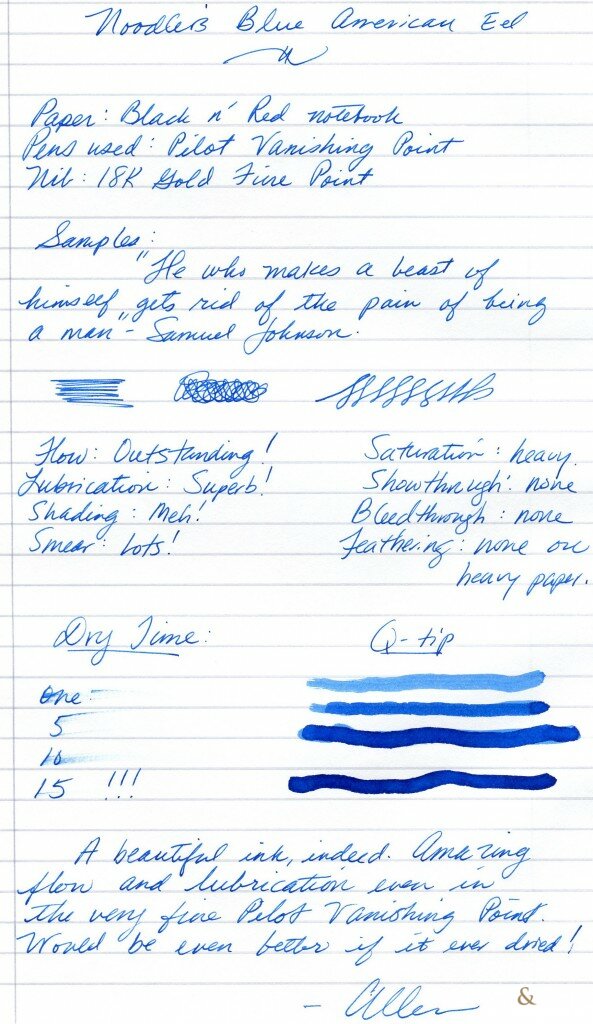 Noodler's Blue American Eel
Paper: Black n' Red notebook
Pens used: Pilot Vanishing Point
Nib: 18K Gold Fine Point
Samples:
"He who makes a beast of
himself gets rid of the pain of being
a man" - Samuel Johnson.
Flow: Outstanding!
Lubrication: Superb!
Shading: Meh!
Smear: Lots!
Saturation: heavy.
Showthrough: none
Bleedthrough: none
Feathering: none on
heavy paper.
Dry Time:
one
5
10
15 !!!
Q-tip
A beautiful ink, indeed. Amazing
flow and lubrication even in
the very fine Pilot Vanishing Point.
Would be even better if it ever dried!
- Allen
&